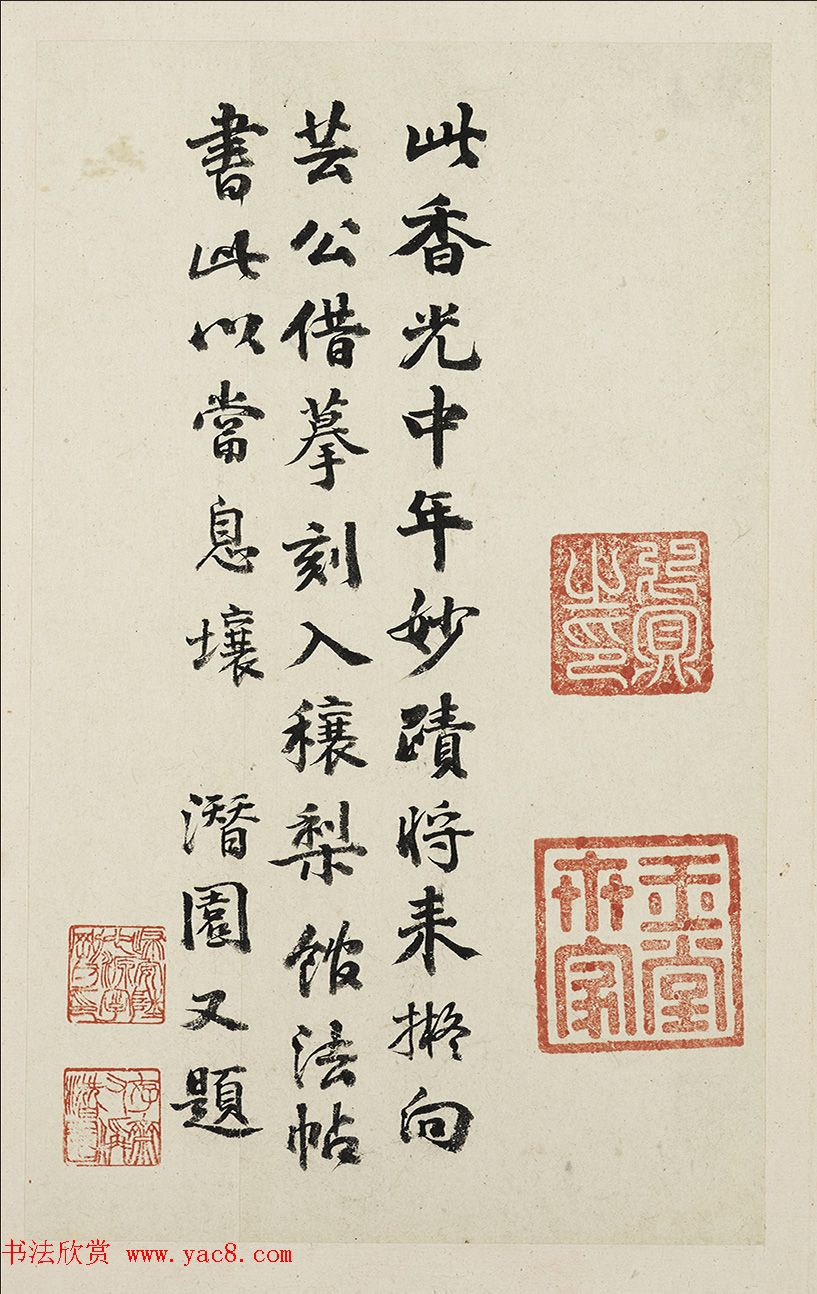 此香光中年妙蹟將来擬向
芸公借摹刻入穰梨館法帖
書此以當息壤 潛園又題
玉堂世家
書法欣賞 www.yac8.com